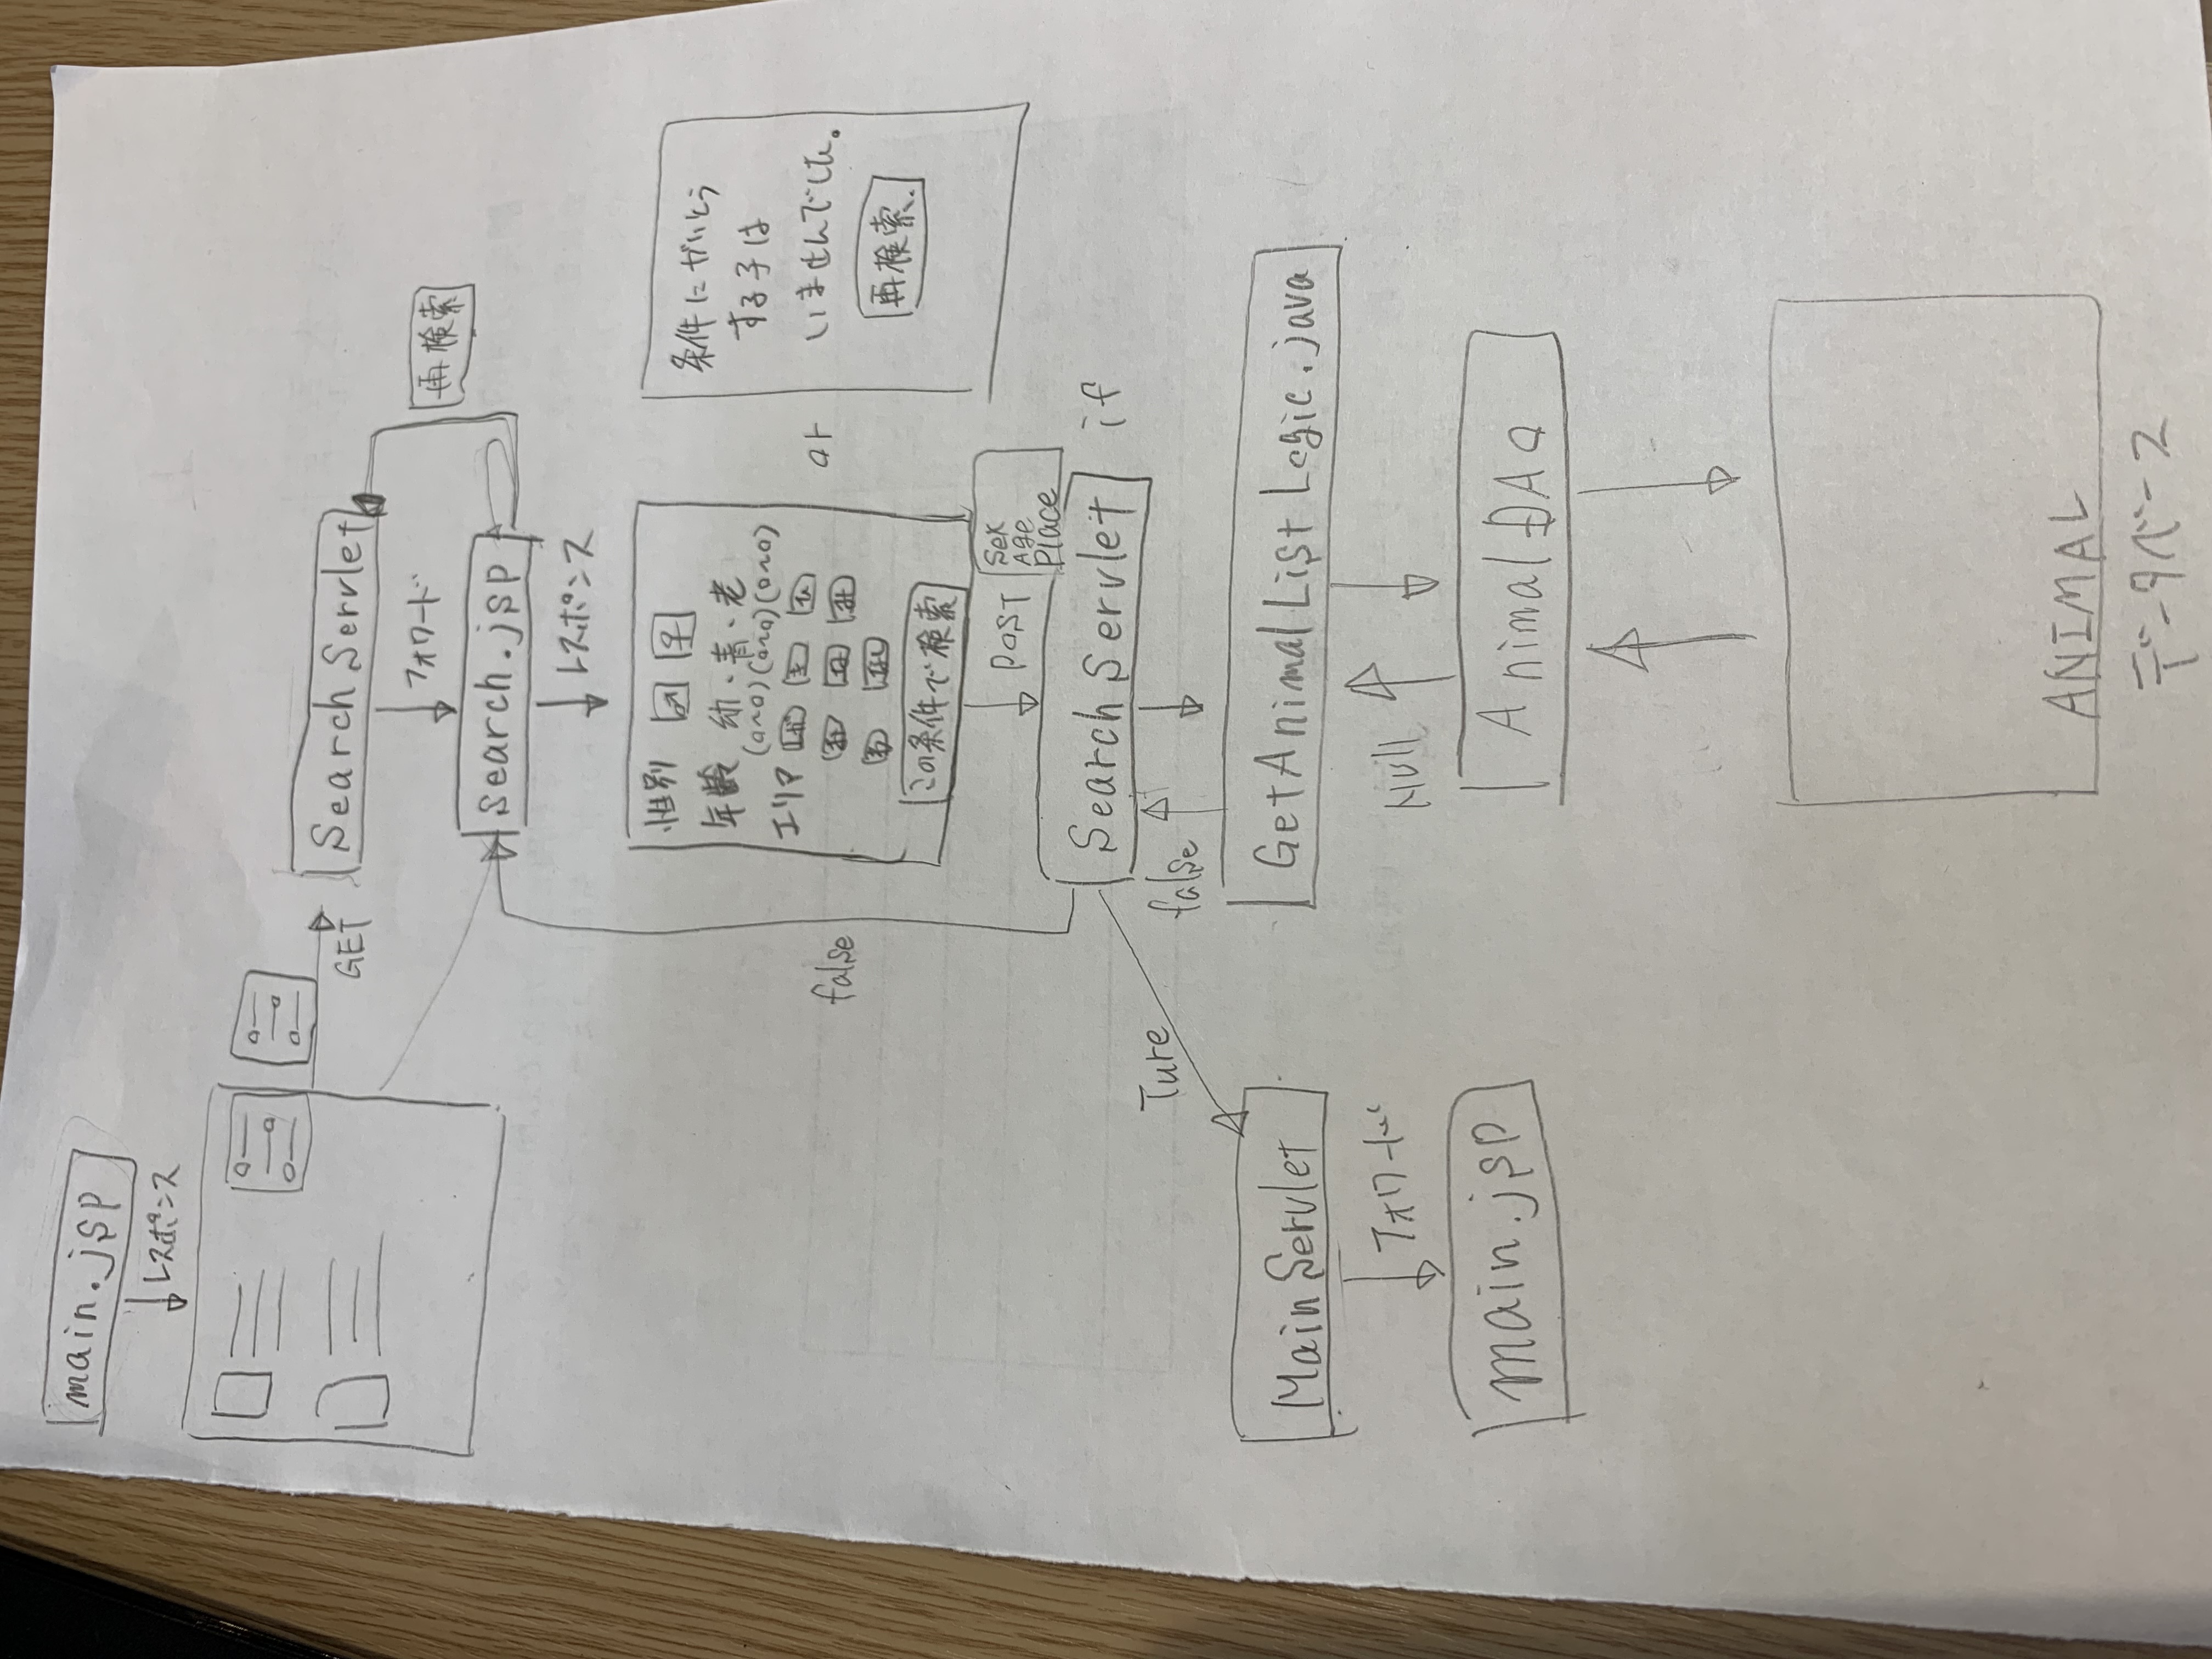 main.jsp
レスポンス
GET
Search Servlet
フォワード
再検索
search.jsp
レスポンス
性別 ♂ ♀
年齢 幼・青・老
(0~0)(0~0)(0~0)
エリア
この条件で検索
or
条件にがいとう
する子は
いませんでした。
再検索.
false
POST
Sex
Age
Place
Search Servlet
if
Ture
false
Main Servlet
GetAnimal List Logic.java
フォワード
Null
main.jsp
Animal DAO
ANIMAL
データベース